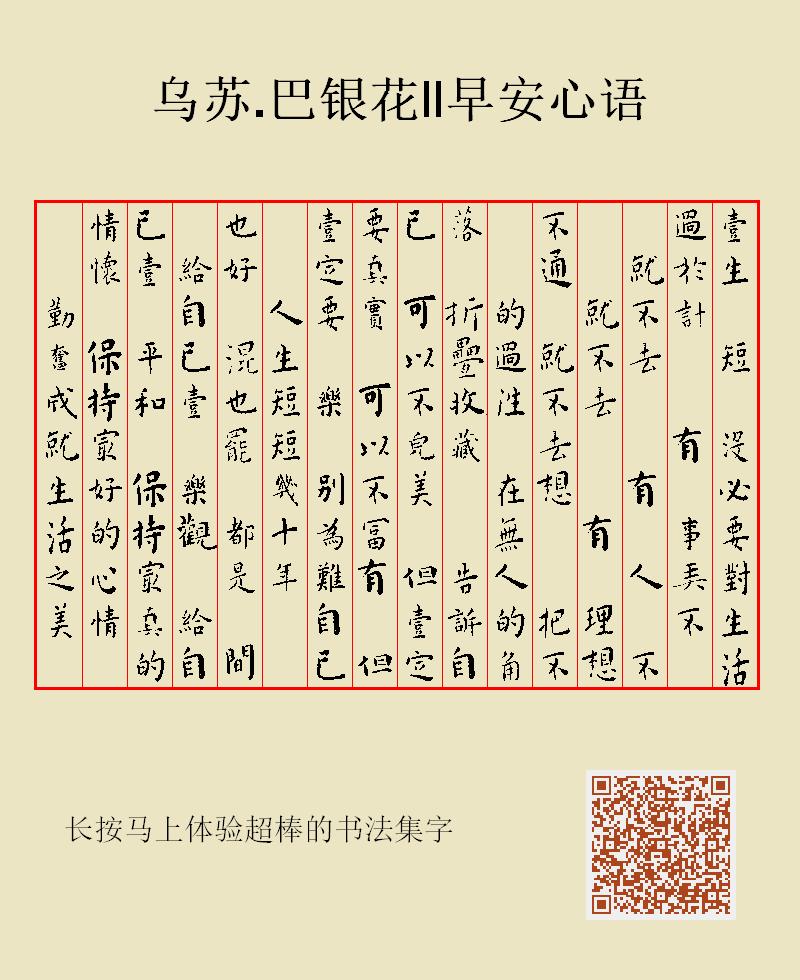 乌苏.巴银花II早安心语
壹生 短 沒必要對生活
過於計 有 事弄不
就不去 有 人 不
就不去 有 理想
不通 就不去想 把不
的過往 在無人的角
落 折疊收藏 告訴自
己 可以不完美 但壹定
要真實 可以不富有 但
壹定要 樂 別為難自己
人生短短幾十年
也好 混也罷 都是 間
給自己壹 樂觀 給自
己壹 平和 保持最真的
情懷 保持最好的心情
勤奮成就生活之美
长按马上体验超棒的书法集字